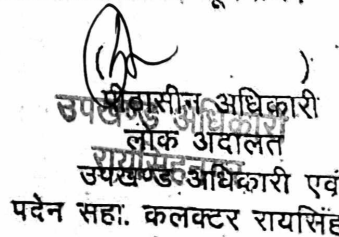 पीठासीन अधिकारी
उपखण्ड अधिकारी
लोक अदालत
रायसिंहनगर
उपखण्ड अधिकारी एवं
पदेन सहा. कलक्टर रायसिंह